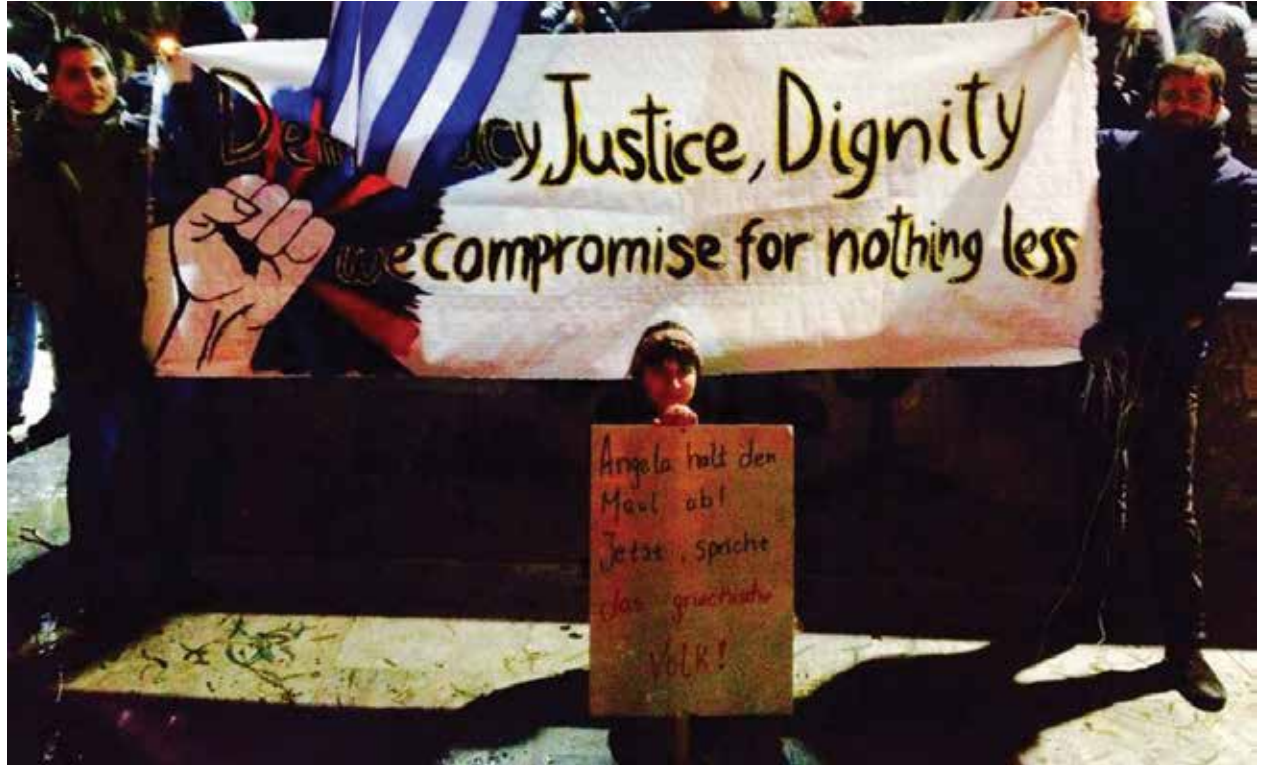 Justice, Dignity
we compromise for nothing less
Angela halt den
Maul ab!
Jetzt, spricht
das griechische
VOLK!